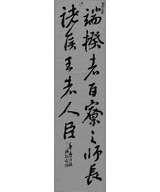 端揆者百寮之師長
諸侯王者人臣